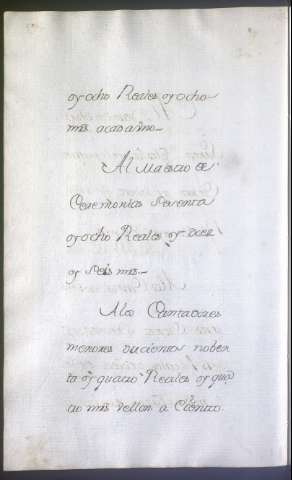 y ocho Reales y ocho
mrs. acada vno-
Al Maestro de
Ceremonias Setenta
y ocho Reales y diez
y Seis mrs.-
Alos Cantadores
menores ducientos noben
ta y quatro Reales y qua
tro mrs vellon a Ciento.